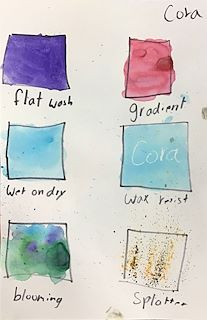 Cora
flat wash
gradient
wet on dry
Cora
wax resist
blooming
Splatter